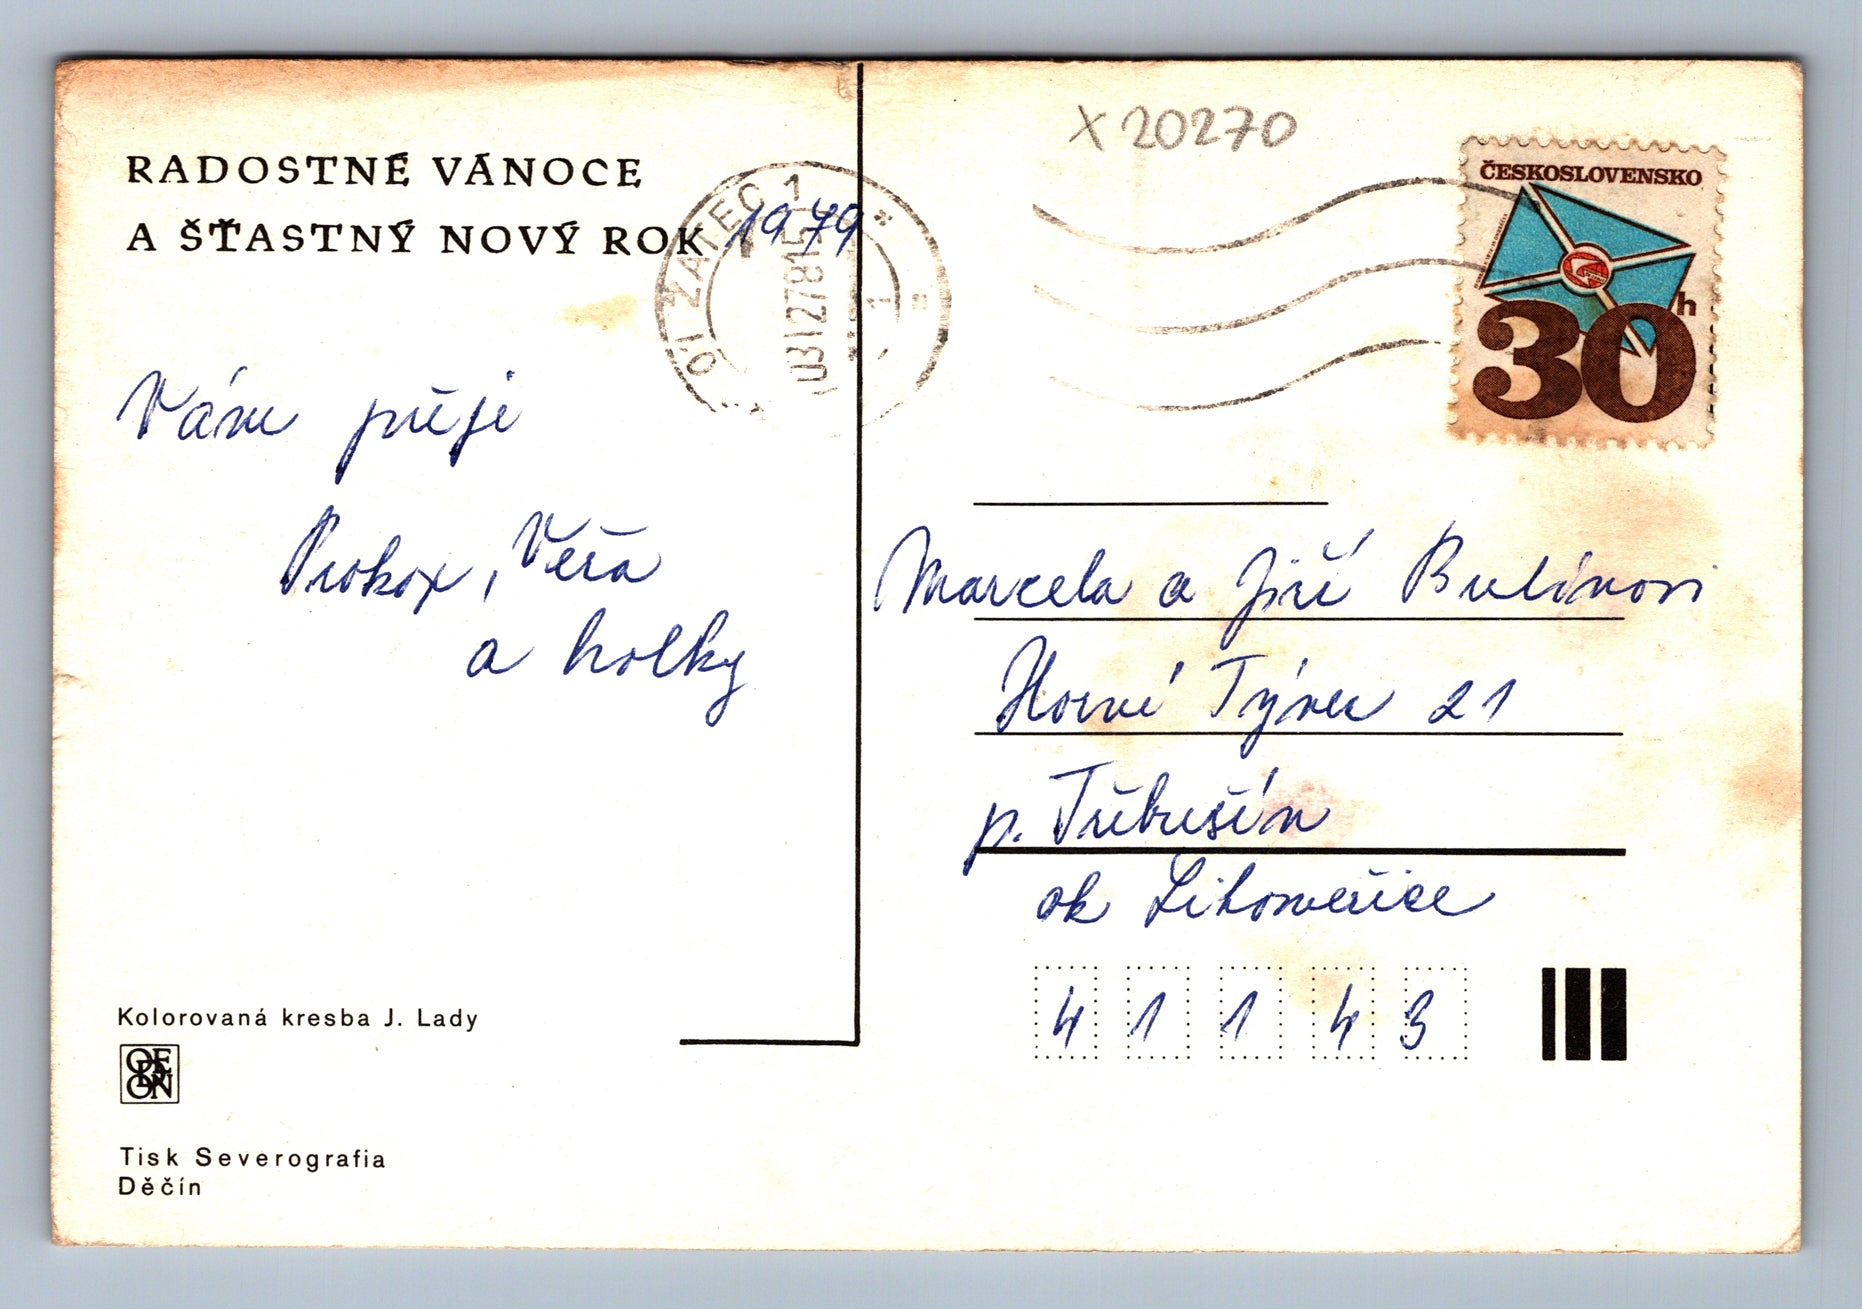 RADOSTNÉ VÁNOCE
A ŠŤASTNÝ NOVÝ ROK 1979
Vám přeji
Prokop, Věra
a holky
Kolorovaná kresba J. Lady
ODEON
Tisk Severografia
Děčín
X 20270
ŽATEC 1
ČESKOSLOVENSKO
30 h
Marcela a Jiří Bulínovi
Horní Týnec 21
p. Třebušín
ok Litoměřice
4 1 1 4 3